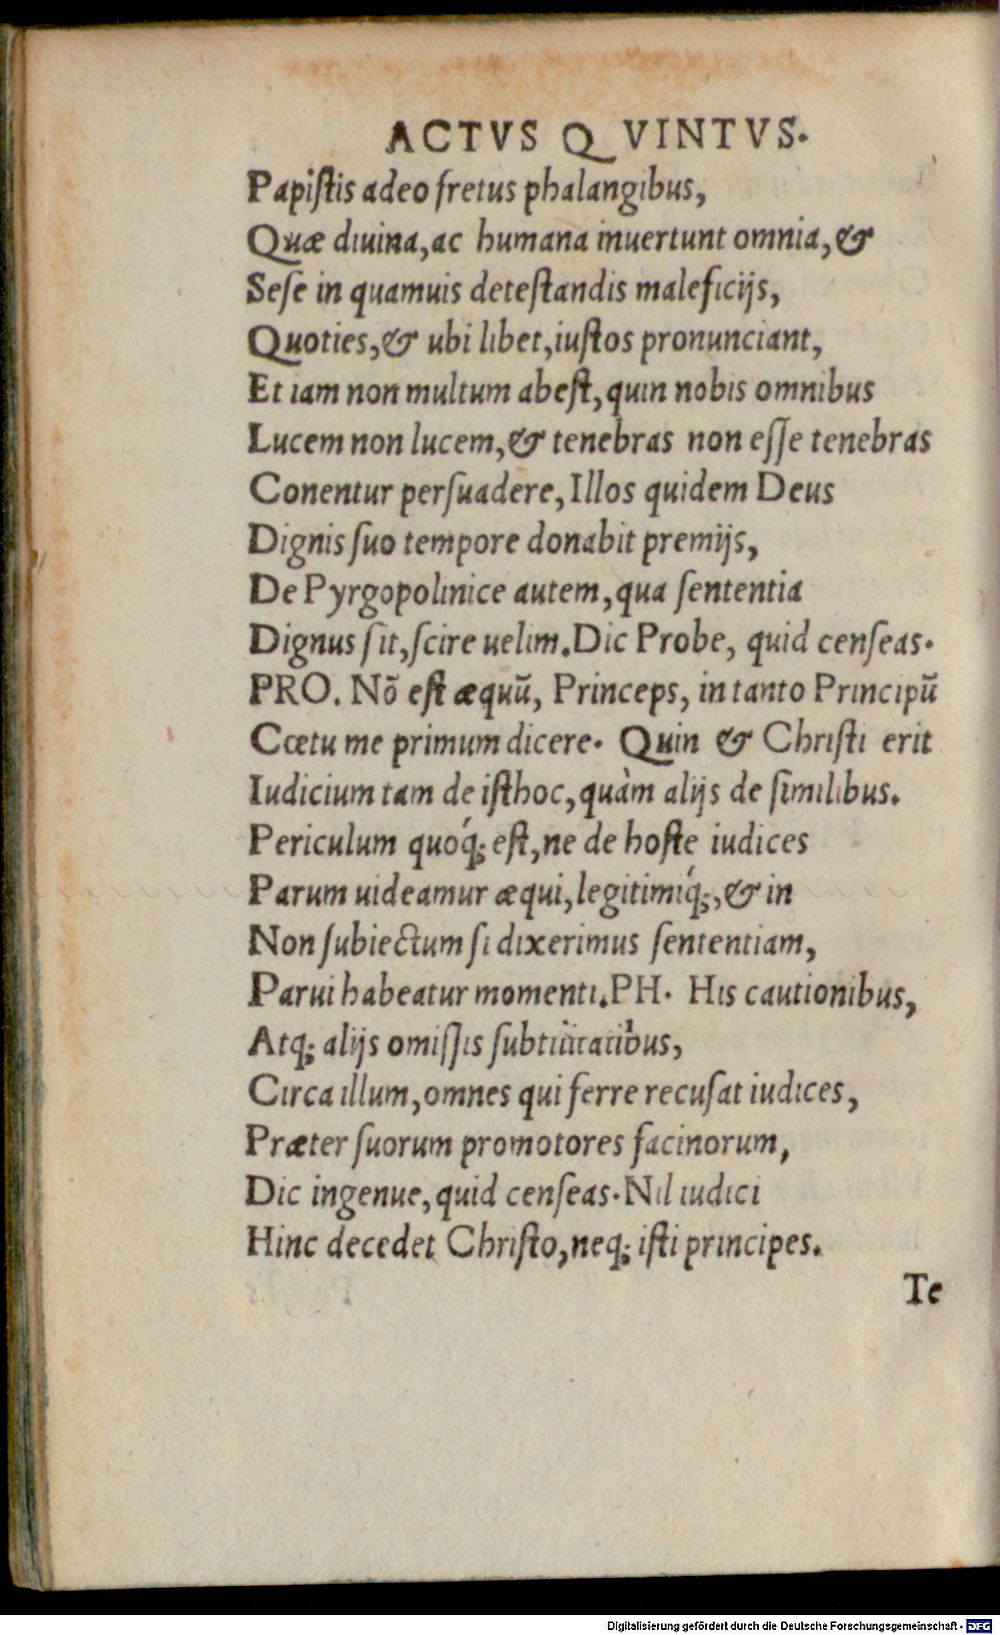 ACTVS QVINTVS.
Papistis adeo fretus phalangibus,
Quæ diuina, ac humana inuertunt omnia, &
Sese in quamuis detestandis maleficijs,
Quoties, & ubi libet, iustos pronunciant,
Et iam non multum abest, quin nobis omnibus
Lucem non lucem, & tenebras non esse tenebras
Conentur persuadere, Illos quidem Deus
Dignis suo tempore donabit premijs,
De Pyrgopolinice autem, qua sententia
Dignus sit, scire uelim. Dic Probe, quid censeas.
PRO. Nõ est æquũ, Princeps, in tanto Principũ
Cœtu me primum dicere. Quin & Christi erit
Iudicium tam de isthoc, quàm alijs de similibus.
Periculum quoq́; est, ne de hoste iudices
Parum uideamur æqui, legitimiq́;, & in
Non subiectum si dixerimus sententiam,
Parui habeatur momenti. PH. His cautionibus,
Atq; alijs omissis subtilitatibus,
Circa illum, omnes qui ferre recusat iudices,
Præter suorum promotores facinorum,
Dic ingenue, quid censeas. Nil iudici
Hinc decedet Christo, neq; isti principes.
Te
Digitalisierung gefördert durch die Deutsche Forschungsgemeinschaft - DFG